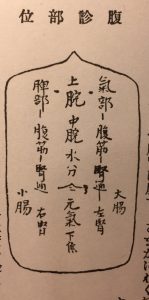 腹診部位
大腸
氣部ー腹筋ー腎通ー左腎
上脘中脘水分 元氣下焦
脾部ー腹筋ー腎通 右腎
小腸